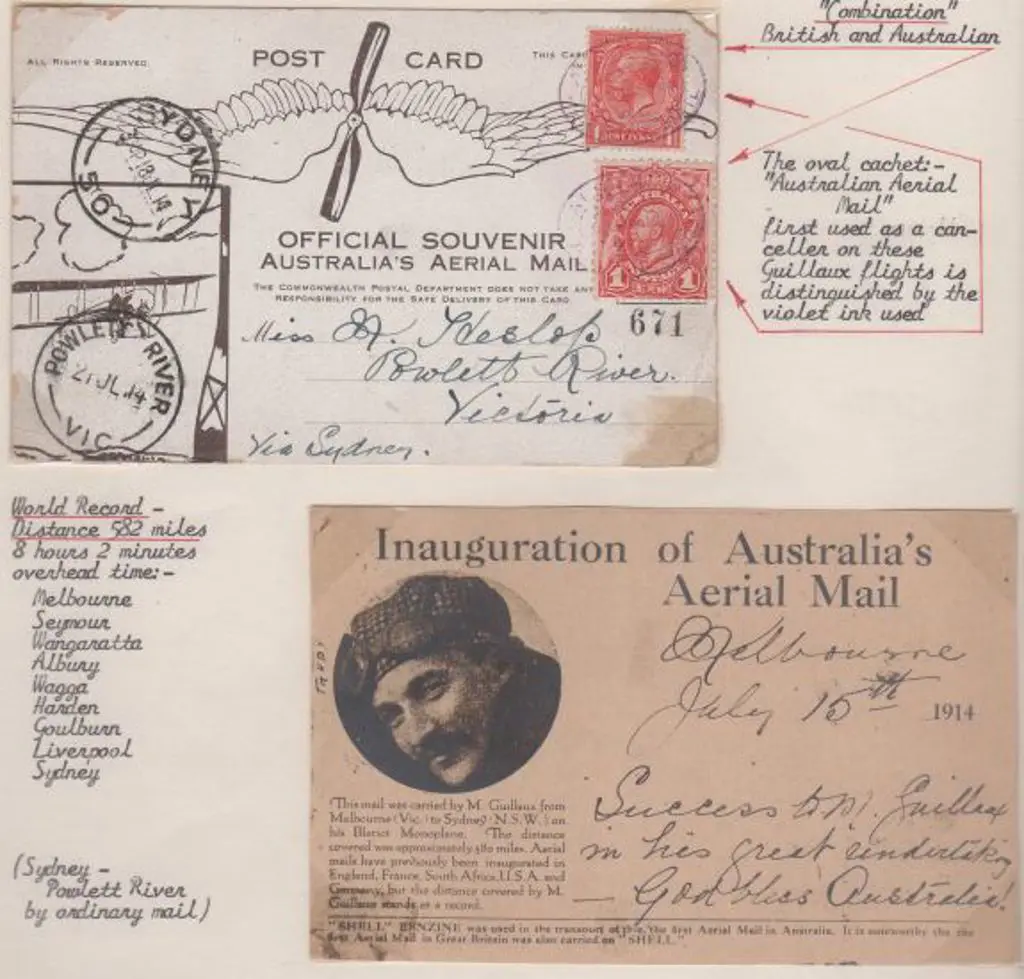 "Combination"
British and Australian
ALL RIGHTS RESERVED
POST CARD
THIS
SYDNEY
18 JL 14
50
ONE PENNY
1
The oval cachet:-
"Australian Aerial
Mail"
first used as a can-
celler on these
Guillaux flights is
distinguished by the
violet ink used
AUSTRALIA
1 1
OFFICIAL SOUVENIR
AUSTRALIA'S AERIAL MAIL
THE COMMONWEALTH POSTAL DEPARTMENT DOES NOT TAKE ANY
RESPONSIBILITY FOR THE SAFE DELIVERY OF THIS CARD
671
Miss A. Heslop
Powlett River.
Victoria
Via Sydney.
POWLETT RIVER
21 JL 14
VIC
World Record -
Distance 582 miles
8 hours 2 minutes
overhead time:-
Melbourne
Seymour
Wangaratta
Albury
Wagga
Harden
Goulburn
Liverpool
Sydney
(Sydney -
Powlett River
by ordinary mail)
Inauguration of Australia's
Aerial Mail
Melbourne
July 15th 1914
Success to M. Guillaux
in his great undertaking
— God bless Australia!
This mail was carried by M. Guillaux from
Melbourne (Vic.) to Sydney (N.S.W.) on
his Bleriot Monoplane. The distance
covered was approximately 580 miles. Aerial
mails have previously been inaugurated in
England, France, South Africa, U.S.A. and
Germany, but the distance covered by M.
Guillaux stands as a record.
"SHELL" BENZINE was used in the transport of this, the first Aerial Mail in Australia. It is noteworthy the the
first Aerial Mail in Great Britain was also carried on "SHELL".